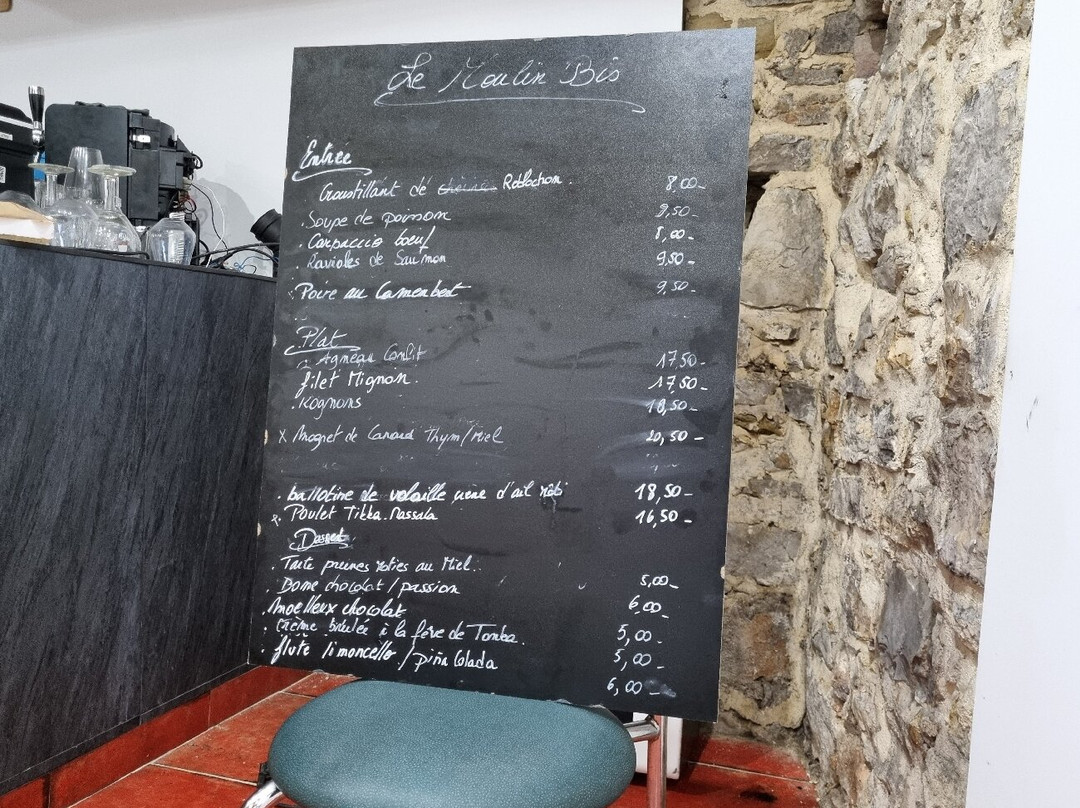 Le Moulin Bis
Entrée
Croustillant de Reblochon. 8,00-
. Soupe de poisson 9,50-
. Carpaccio boeuf 8,00-
. Ravioles de Saumon 9,50-
. Poire au Camembert 9,50-
Plat
Agneau Confit 17,50-
filet Mignon. 17,50-
. Rognons 18,50-
x Magret de Canard Thym/Miel 20,50-
. ballotine de volaille crème d'ail 18,50-
. Poulet Tikka Massala 16,50-
Dessert
. Tarte prunes roties au Miel. 5,00-
. Dome chocolat / passion 6,00-
. Moelleux chocolat 5,00-
. Crème brulée à la fève de Tonka. 5,00-
. flute limoncello / piña Colada 6,00-